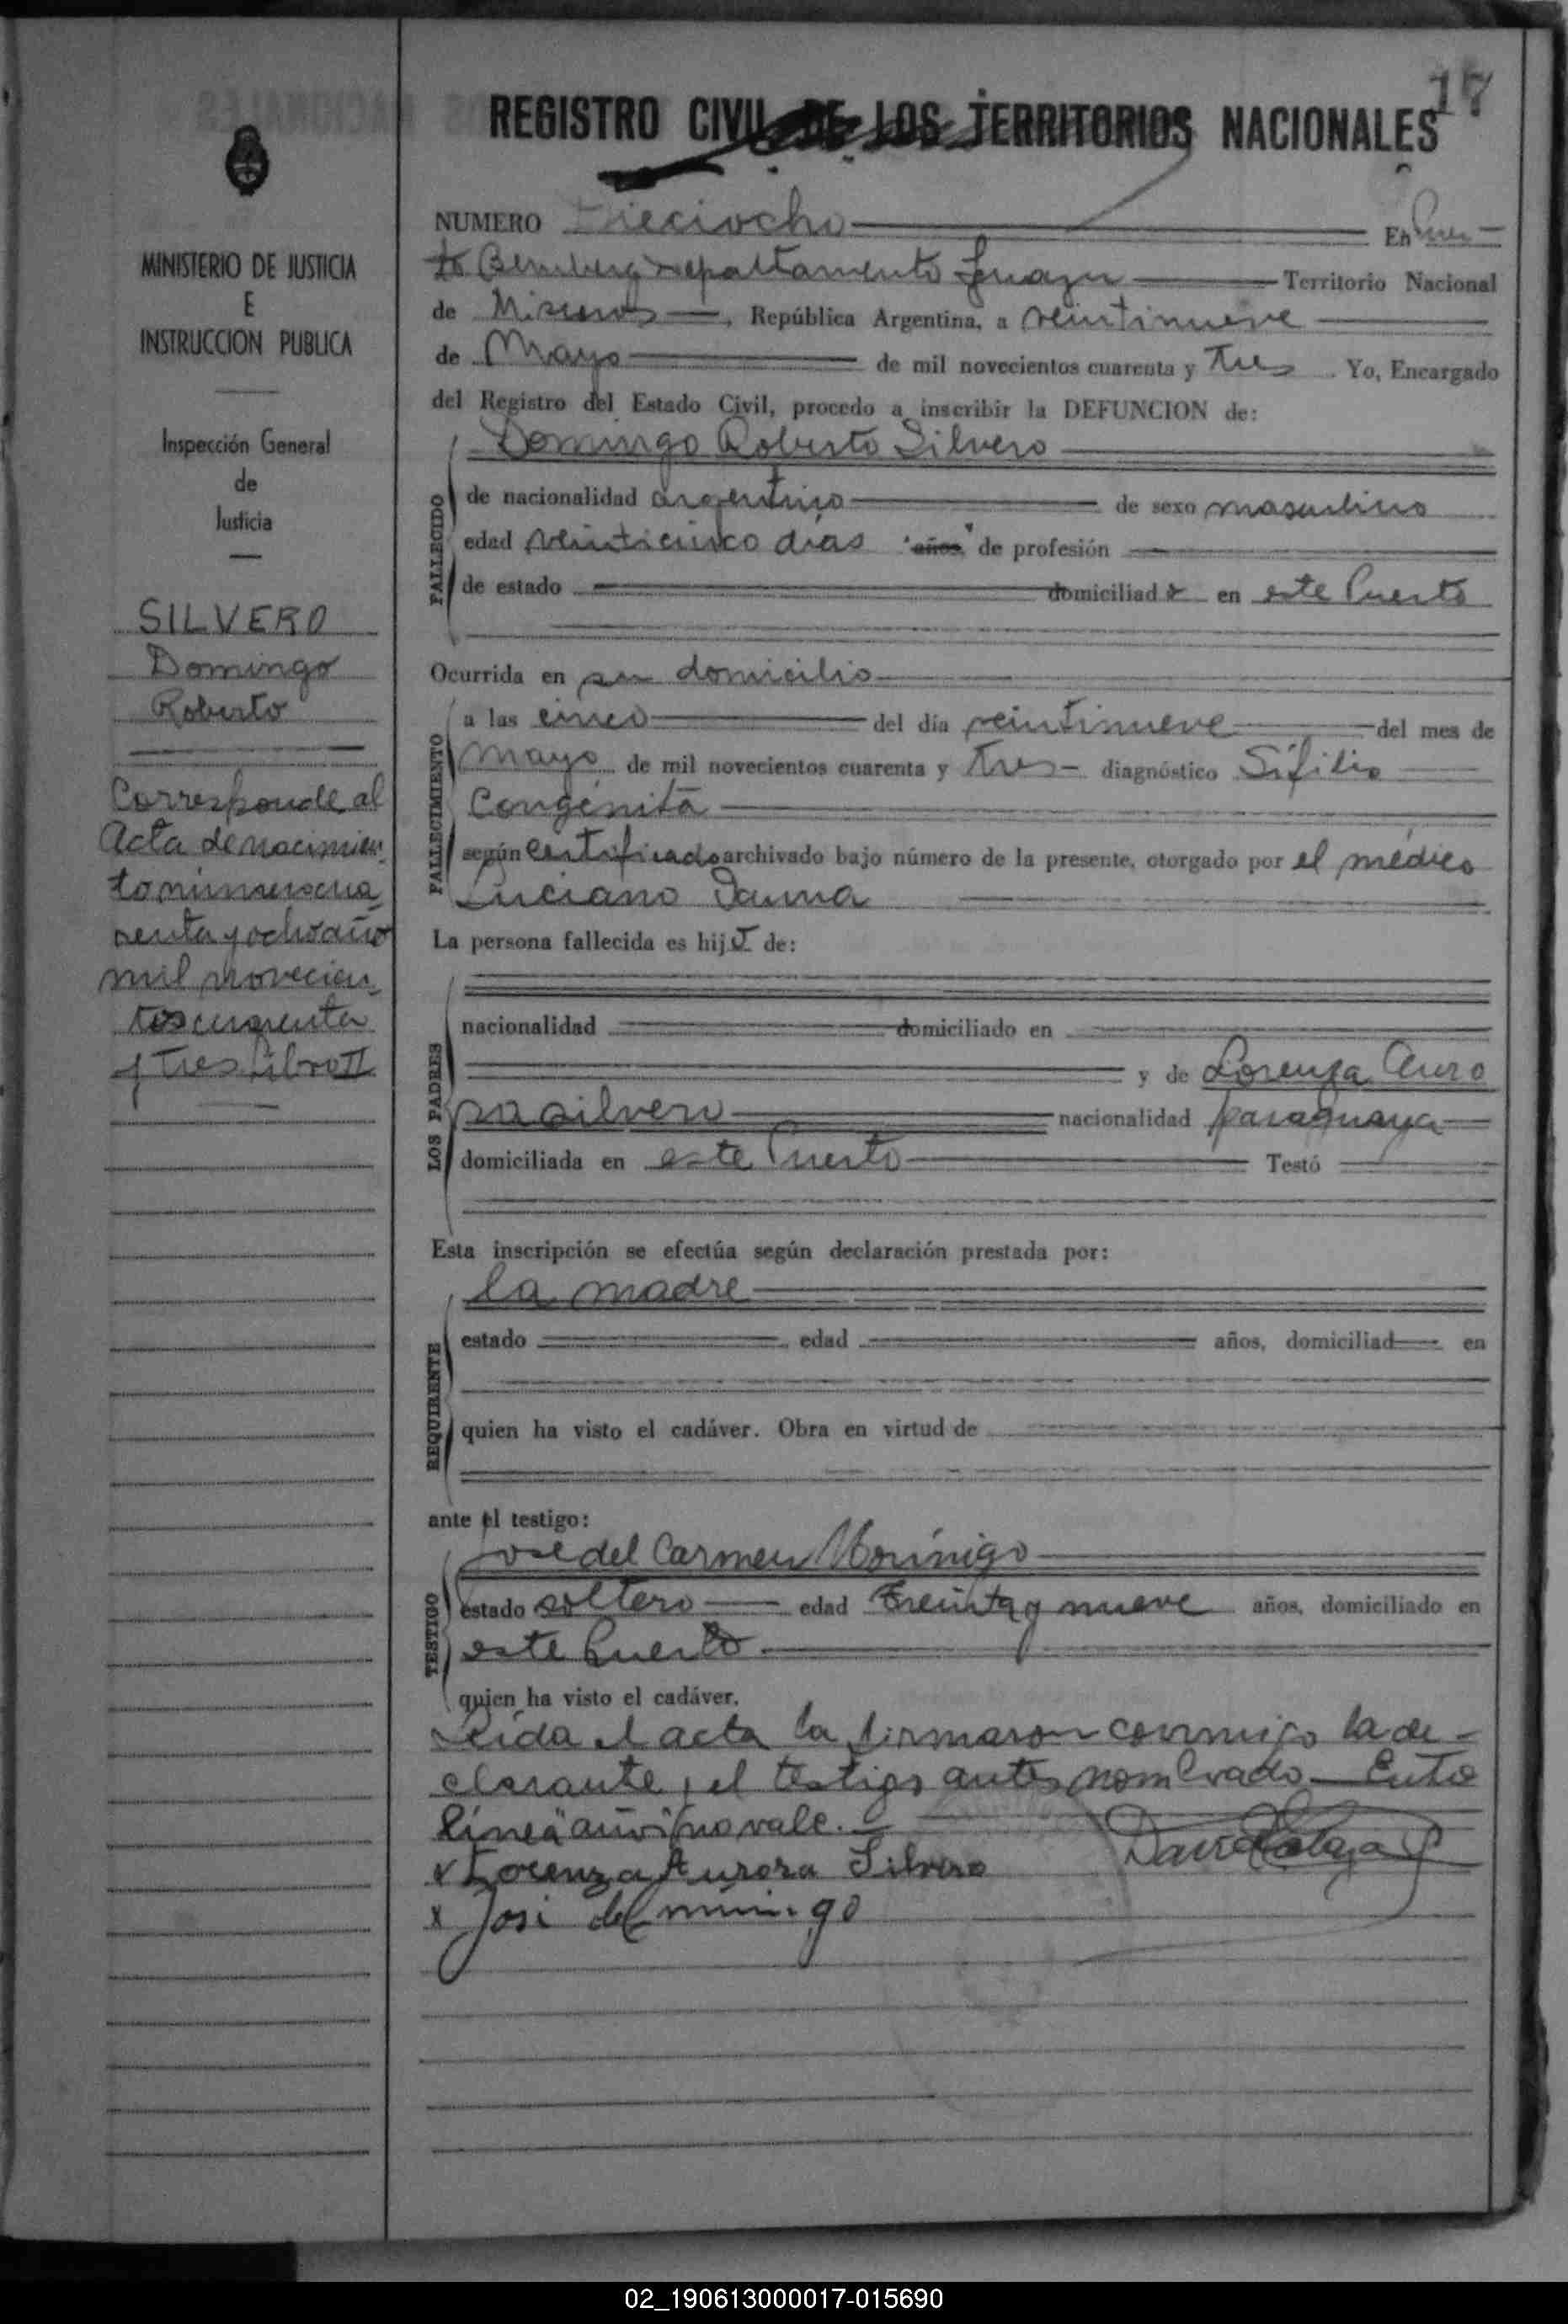 17
REGISTRO CIVIL DE LOS TERRITORIOS NACIONALES
MINISTERIO DE JUSTICIA
E
INSTRUCCION PUBLICA
Inspección General
de
Justicia
SILVERO
Domingo
Roberto
Corresponde al
Acta de nacimien
to número cua
renta y ocho año
mil novecien
tos cuarenta
y tres Libro II
NUMERO Dieciocho En Puer
to Bemberg Departamento Iguazu Territorio Nacional
de Misiones, República Argentina, a veintinueve
de Mayo de mil novecientos cuarenta y Tres. Yo, Encargado
del Registro del Estado Civil, procedo a inscribir la DEFUNCION de:
FALLECIDO
Domingo Roberto Silvero
de nacionalidad argentino de sexo masculino
edad veinticinco días "años" de profesión
de estado domiciliado en este Puerto
Ocurrida en su domicilio
FALLECIMIENTO
a las cinco del día veintinueve del mes de
mayo de mil novecientos cuarenta y Tres diagnóstico Sífilis
Congénita
según certificado archivado bajo número de la presente, otorgado por el médico
Luciano
La persona fallecida es hijo de:
LOS PADRES
nacionalidad domiciliado en
y de Lorenza Auro
ra Silvero nacionalidad paraguaya
domiciliada en este Puerto Testó
Esta inscripción se efectúa según declaración prestada por:
REQUIRENTE
la madre
estado edad años, domiciliad en
quien ha visto el cadáver. Obra en virtud de
ante el testigo:
TESTIGO
Jose del Carmen Morínigo
estado soltero edad Treinta y nueve años, domiciliado en
este Puerto
quien ha visto el cadáver.
Leida el acta la firmaron conmigo la de-
clarante, el testigo antes nombrado. Ento
línea "años" no vale.
x Lorenza Aurora Silvero
x José del
02_190613000017-015690